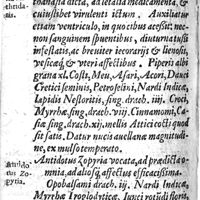 thanasia dicta, ad letalia medicamenta, &
cuiuslibet virulenti ictum. Auxiliatur
etiam ventriculo, in quo cibus acescit: nec
non sanguinem spuentibus, diuturna tussi
infestatis, ac breuiter iecorarijs & lienosis,
vesicæq́; & vteri affectibus. Piperis albi
grana xl. Costi, Meu, Asari, Acori, Dauci
Cretici seminis, Petroselini, Nardi Indicæ,
Lapidis Nestoritis, sing. drach. iiij. Croci,
Myrrhæ sing. drach. viij. Cinnamomi, Ca-
siæ sing. drach. xij. mellis Attici cocti quod
sit satis. Datur nucis auellanæ magnitudi-
ne, ex mulso temperato.
Antidotus Zopyria vocata, ad prædicta o-
mnia, ad aliosq́; affectus efficacissima.
Opobalsami drach. iij. Nardi Indicæ,
Myrrhæ Troglodyticæ, Iunci rotudi floris,
ehnda-
nis.
Antido
tus Zo-
pyria.